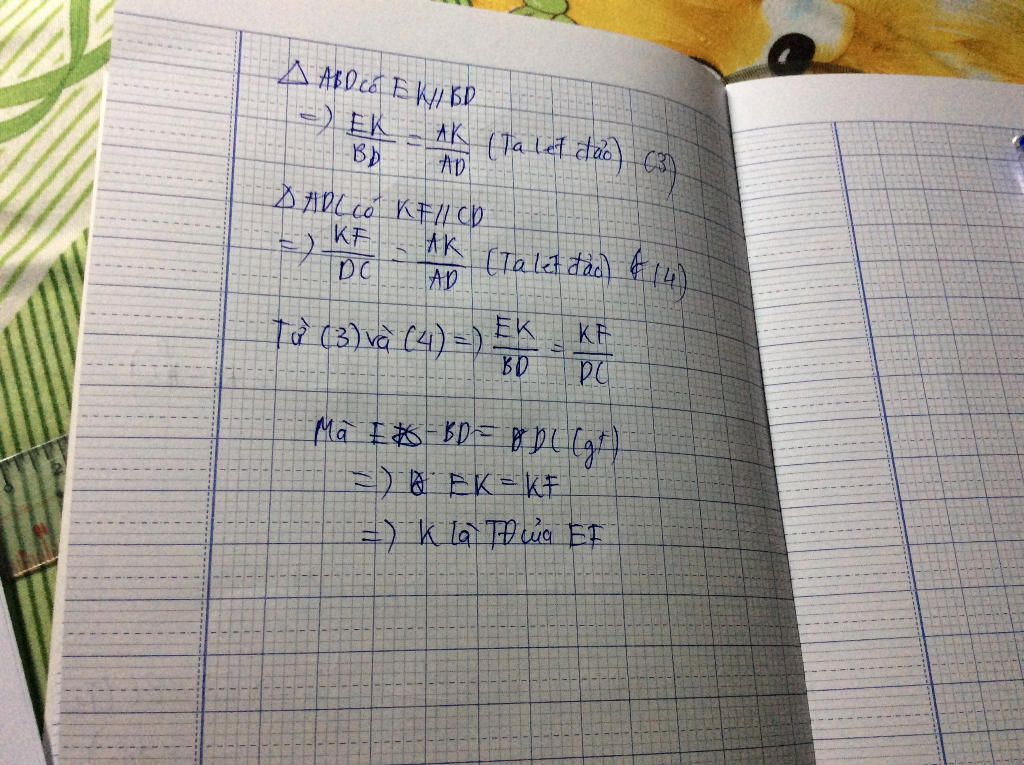 Δ ABD có EK // BD
=> EK/BD = AK/AD (Ta let đảo) (3)
Δ ADC có KF // CD
=> KF/DC = AK/AD (Ta let đảo) (4)
Từ (3) và (4) => EK/BD = KF/DC
Mà BD = DC (gt)
=> EK = KF
=> K là TĐ của EF